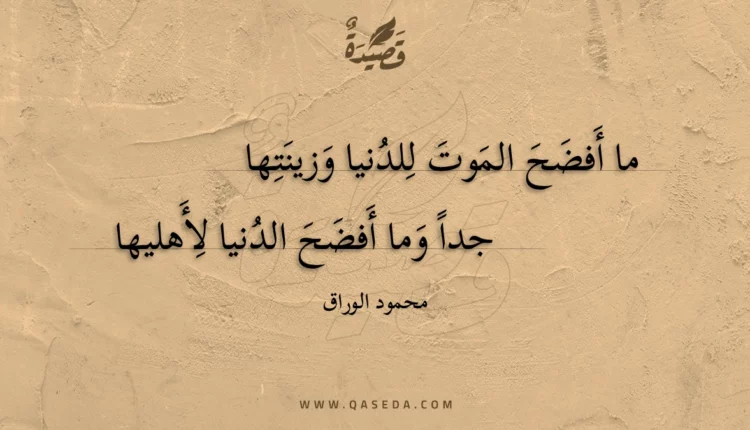 قَصِيْدَةٌ
ما أَفضَحَ المَوتَ لِلدُنيا وَزينَتِها
جداً وَما أَفضَحَ الدُنيا لِأَهليها
محمود الوراق
WWW.QASEDA.COM